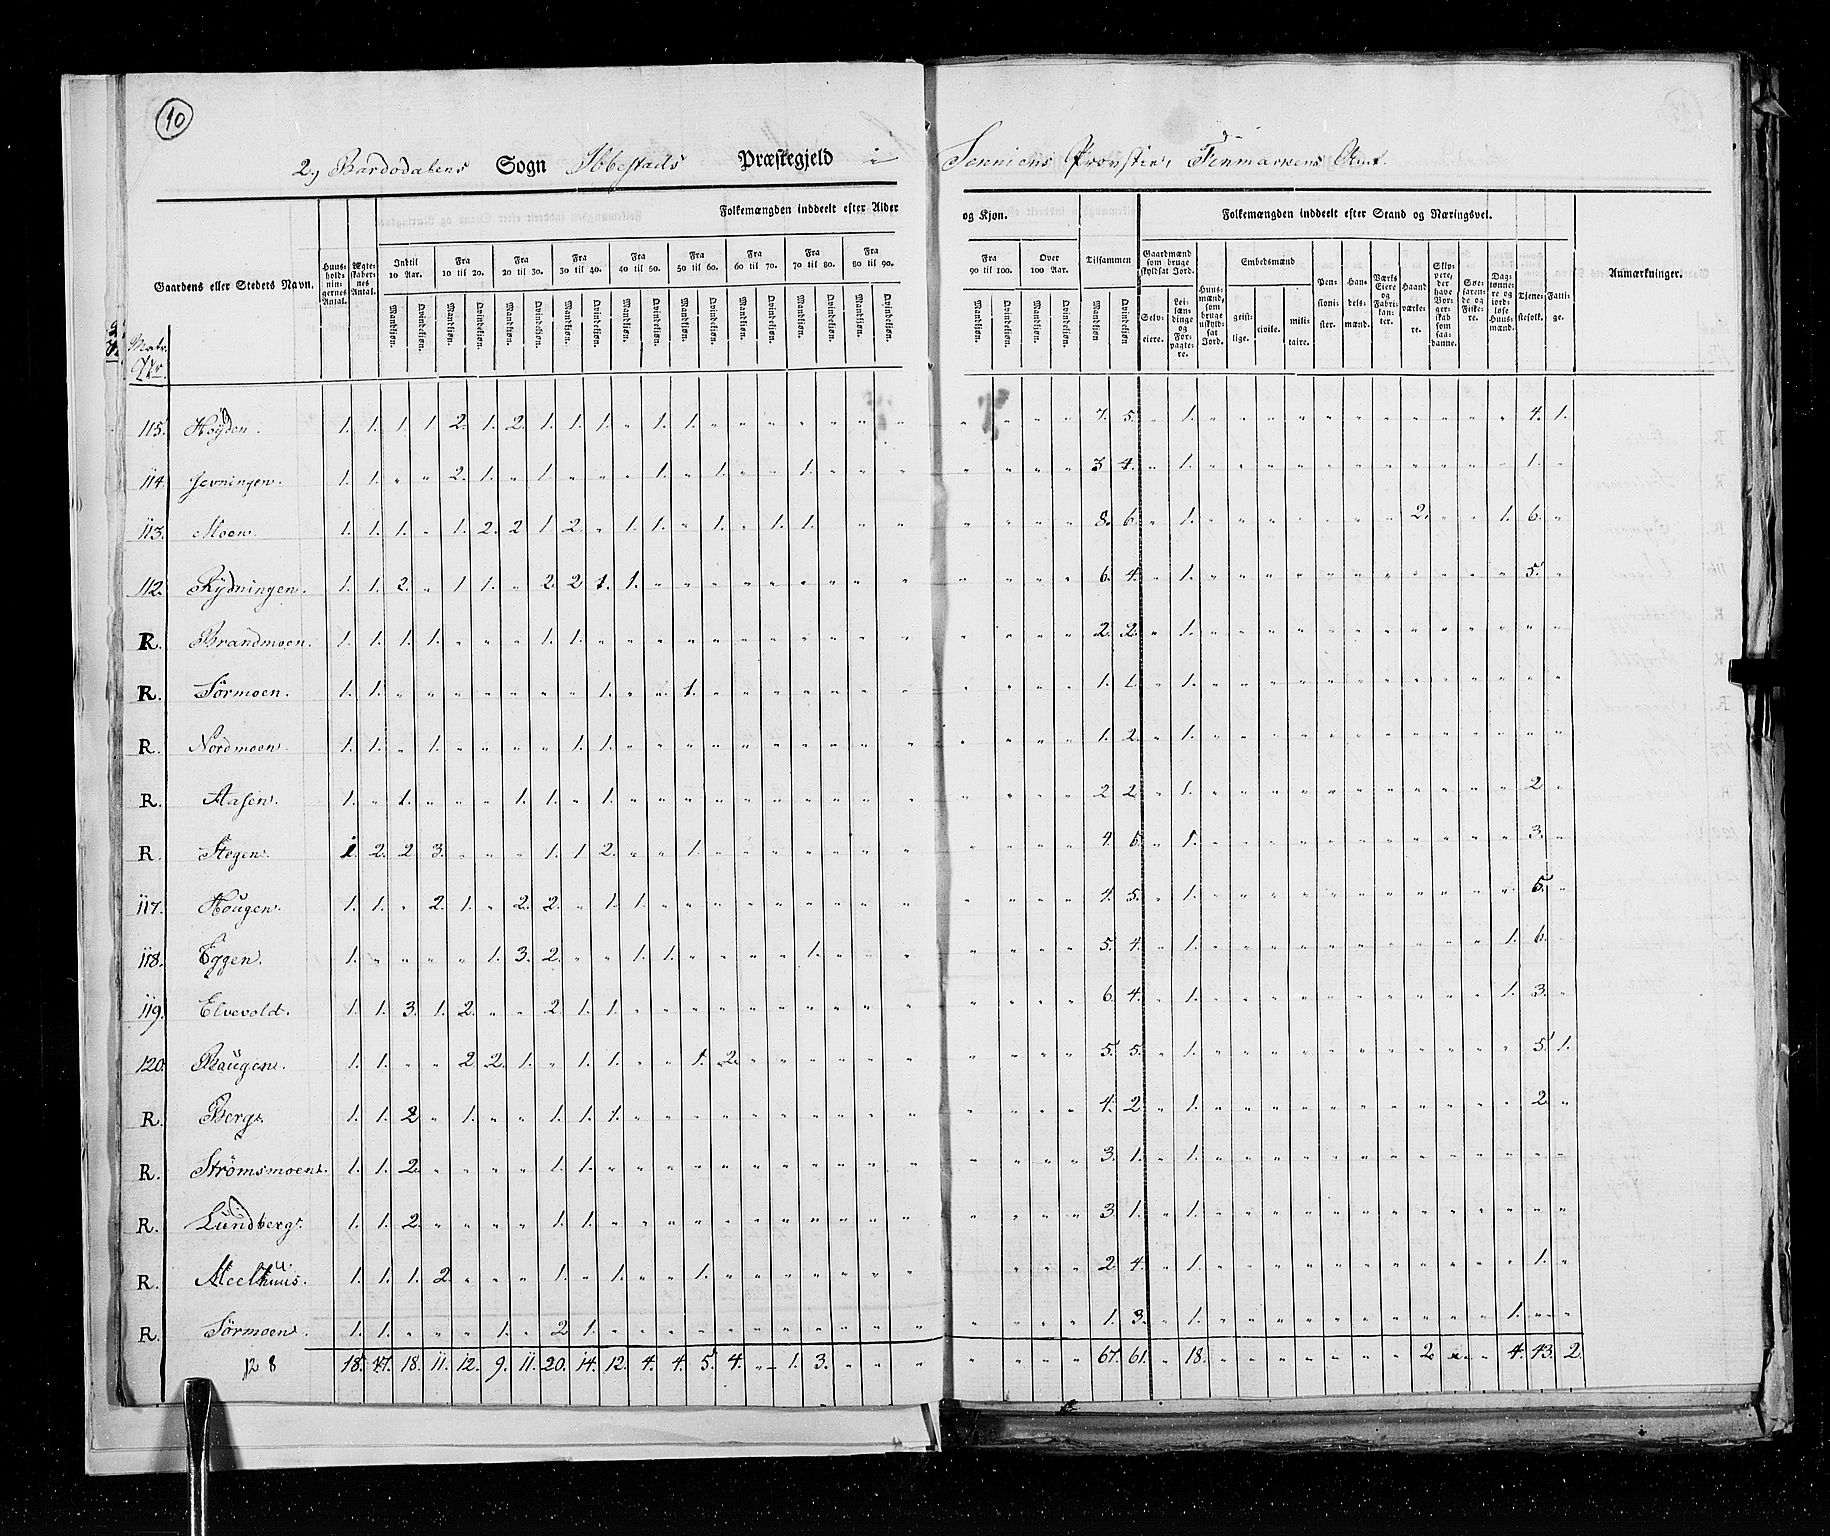 10
2) Bardodalens Sogn Ibbestads Præstegjeld i Senniens Provstie, Finmarkens Amt.
Gaardens eller Stedets Navn.
Matr. No.
Huusholdningernes Antal.
Ægteskabernes Antal.
Folkemængden inddeelt efter Alder og Kjøn.
Indtil 10 Aar.
Fra 10 til 20.
Fra 20 til 30.
Fra 30 til 40.
Fra 40 til 50.
Fra 50 til 60.
Fra 60 til 70.
Fra 70 til 80.
Fra 80 til 90.
Fra 90 til 100.
Over 100 Aar.
Tilsammen
Mandkjøn. Qvindekjøn.
Folkemængden inddeelt efter Stand og Næringsvei.
Gaardmænd som bruge skyldsat Jord.
Selveiere.
Leilændinge og Forpagtere.
Huusmænd, som bruge uskyldsat Jord.
Embedsmænd
geistlige.
civile.
militaire.
Pensionister.
Handelsmænd.
Værks Eiere og Fabrikanter.
Haandværkere.
Skippere, der have Borgerskab som saadanne.
Søefarende og Fiskere.
Daglønnere og jordløse Huusmænd.
Tjenestefolk.
Fattige.
Anmærkninger.
115. Høyden. 1. 1. 1. 1 2. 1. 2. 1. 1. 1. „ 1. 1. „ „ „ „ „ 7. 5. „ 1. „ „ 4. 1.
114. Jevningen. 1. 1. „ „ 2. 1. „ 1. „ „ „ 1. „ 1. „ „ 1. „ 3 4. „ 1. „ „ 1. „
113. Moen. 1. 1. 1. „ 1. 2. 2 1. 2. „ 1. 1. „ 1. „ 1. 1. „ 8. 6. „ 1. „ „ 2. „ „ 1. 6. „
112. Rydningen. 1. 1. 2. „ 1 1. „ 2. 2 1. 1. „ „ 6. 4. „ 1. „ „ 5. „
R. Brandmoen. 1. 1. 1. 1. „ „ „ 1. 1. „ „ 2. 2. „ 1. „ „
R. Sörmoen. 1. 1. „ „ „ „ „ „ „ 1. „ „ 1. „ „ 1. 1. „ 1. „ „
R. Nordmoen. 1. 1. „ 1. „ „ „ „ 1. 1. „ „ 1. 2. „ 1. „ „
R. Aasen. 1. „ 1. „ „ „ 1. 1. „ 1. „ „ 2 2. „ 1. „ „ 2 „
R. Stegen. 1. 2. 2 3. „ „ „ 1. 1 2. „ „ 1. „ „ 4. 6. „ 1. „ „ 3. „
117. Hougen. 1. 1. „ 2. 1. „ 2. 2. „ 1. 1. „ „ 4. 5. „ 1. „ „ 5. „
118. Eggen. 1. „ „ „ „ 1. 3. 2. „ „ 1. 1. „ „ „ „ 1. „ 5. 4. „ 1. „ „ 1. 6. „
119. Elvevold. 1. 1. 3. 1. 2. „ „ 2. 1. 1. „ „ 6. 4. „ 1. „ „ 1. 3. „
120. Baugen. 1. 1. „ „ 2 2. 1. „ 1. 1. „ „ 1. 2. „ „ 5. 5. „ 1. „ „ 5. 1.
R. Berg. 1. 1. 2 „ 1. „ „ 1. 1. 1. „ „ 4. 2 „ 1. „ „ 2. „
R. Strömsmoen. 1. 1. 2. „ „ „ „ 1. 1. „ „ 3. 1. „ 1. „ „
R. Lundberg. 1. 1. 2 „ „ „ „ 1. 1. „ „ 3. 1. „ 1. „ „
R. Meelhuus. 1. 1. 1. 2. „ „ „ 1. „ 1. „ „ 1. „ „ 2 4. „ 1. „ „ 1. „
R. Sörmoen. 1. 1. „ „ „ 1. „ 2 1. „ „ 1. 3. „ 1. „ „ 1. „ „
128 18. 17. 18. 11. 12. 9. 11. 20. 14. 12. 4. 4. 5. 4. „ 1. 3. „ „ „ 67. 61. „ 18. „ „ 2. „ „ 4. 43. 2.